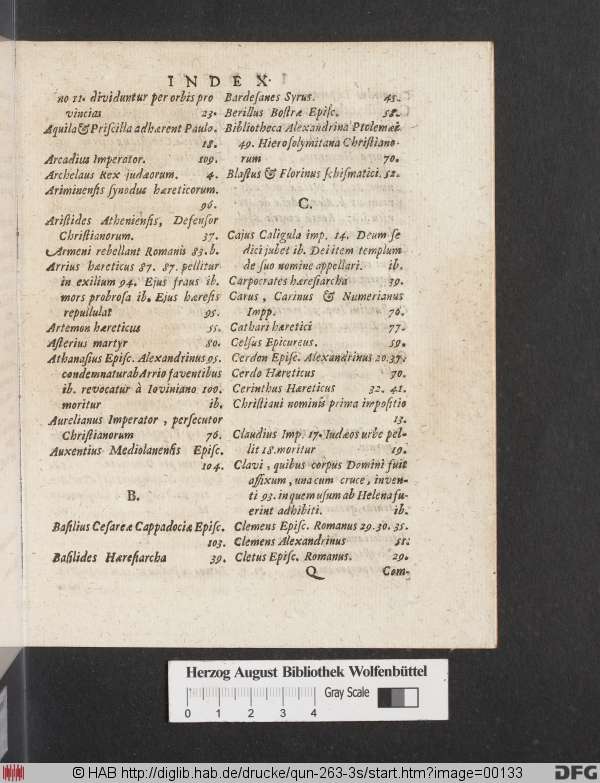 INDEX.
no 11. dividuntur per orbis pro
vincias 23.
Aquila & Priſcilla adhærent Paulo.
18.
Arcadius Imperator. 109.
Archelaus Rex judæorum. 4.
Ariminenſis ſynodus hæreticorum.
96.
Ariſtides Athenienſis, Defenſor
Chriſtianorum. 37.
Armeni rebellant Romanis 83. b.
Arrius hæreticus 87. 87. pellitur
in exilium 94. Ejus fraus ib.
mors probroſa ib. Ejus hæreſis
repullulat 95.
Artemon hæreticus 55.
Aſterius martyr 80.
Athanaſius Epiſc. Alexandrinus 95.
condemnatur ab Arrio faventibus
ib. revocatur à Ioviniano 100.
moritur ib.
Aurelianus Imperator, perſecutor
Chriſtianorum 76.
Auxentius Mediolanenſis Epiſc.
104.
B.
Baſilius Ceſareæ Cappadociæ Epiſc.
103.
Baſilides Hæreſiarcha 39.
Bardeſanes Syrus. 45.
Berillus Boſtræ Epiſc. 58.
Bibliotheca Alexandrina Ptolemæi
49. Hieroſolymitana Chriſtiano-
rum 70.
Blaſtus & Florinus ſchiſmatici. 52.
C.
Cajus Caligula imp. 14. Deum ſe
dici jubet ib. Dei item templum
de ſuo nomine appellari. ib.
Carpocrates hæreſiarcha 39.
Carus, Carinus & Numerianus
Impp. 76.
Cathari hæretici 77.
Celſus Epicureus. 59.
Cerdon Epiſc. Alexandrinus 20. 37.
Cerdo Hæreticus 70.
Cerinthus Hæreticus 32. 41.
Chriſtiani nominis prima impoſitio
13.
Claudius Imp. 17. Iudæos urbe pel-
lit 18. moritur 19.
Clavi, quibus corpus Domini fuit
affixum, una cum cruce, inven-
ti 93. in quem uſum ab Helena fu-
erint adhibiti. ib.
Clemens Epiſc. Romanus 29. 30. 35.
Clemens Alexandrinus 51.
Cletus Epiſc. Romanus. 29.
Q Com-
Herzog August Bibliothek Wolfenbüttel
Gray Scale
0 1 2 3 4
© HAB http://diglib.hab.de/drucke/qun-263-3s/start.htm?image=00133
DFG